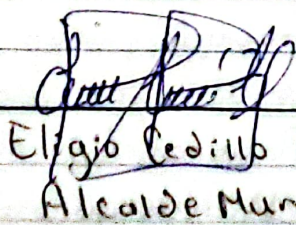 Eligio Cedillo
Alcalde Mun